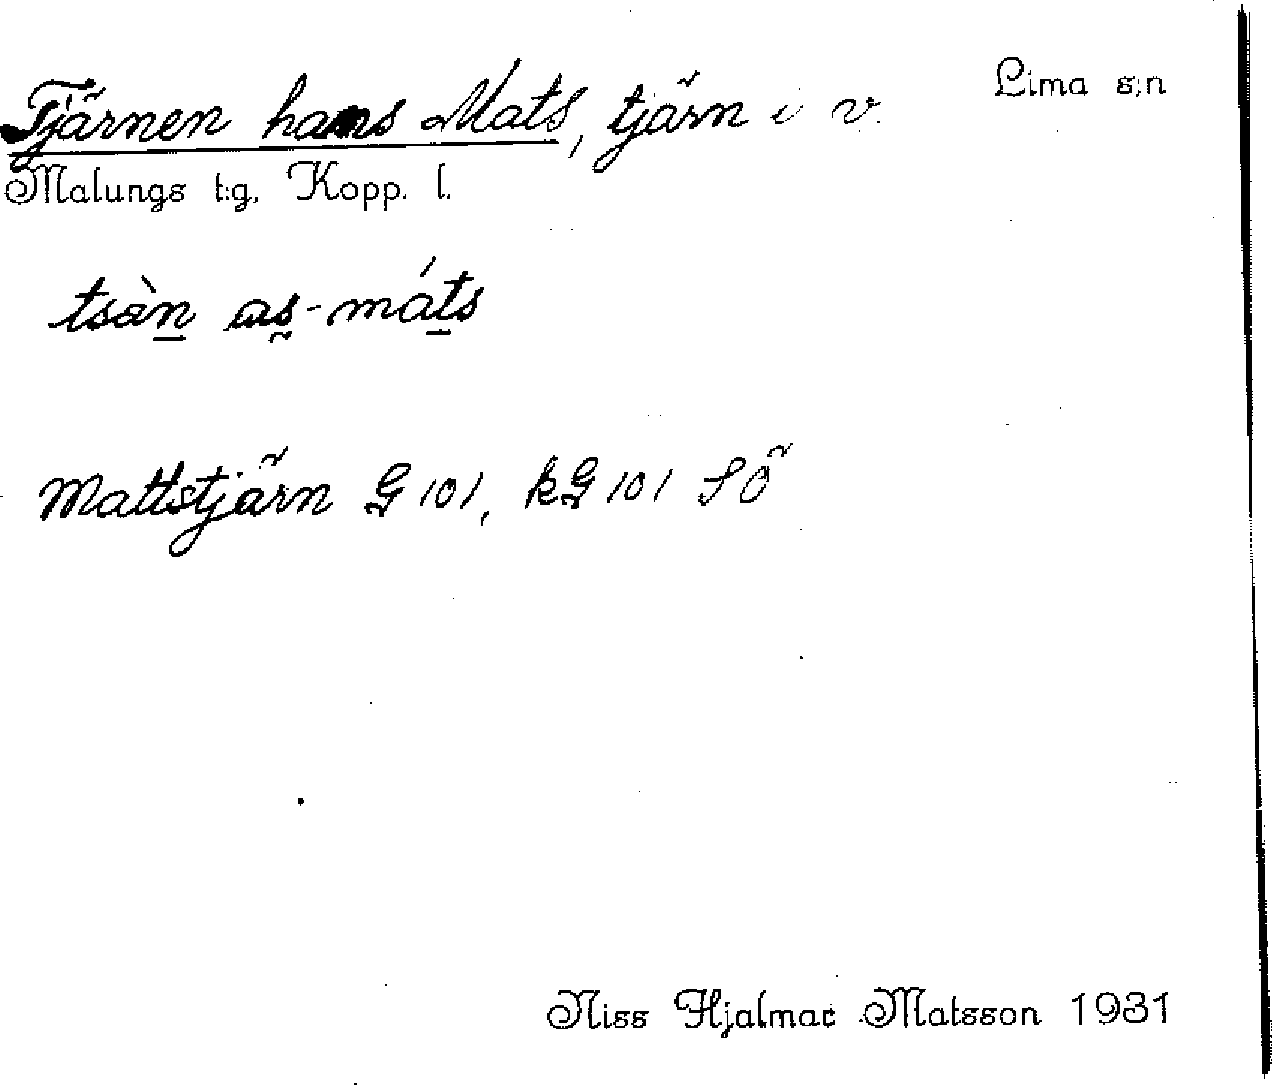 Tjärnen hans Mats, tjärn i v. Lima s:n
Malungs t:g. Kopp. l.
tsàn as-máts
Mattstjärn G 101, kG 101 SÖ
Niss Hjalmar Matsson 1931